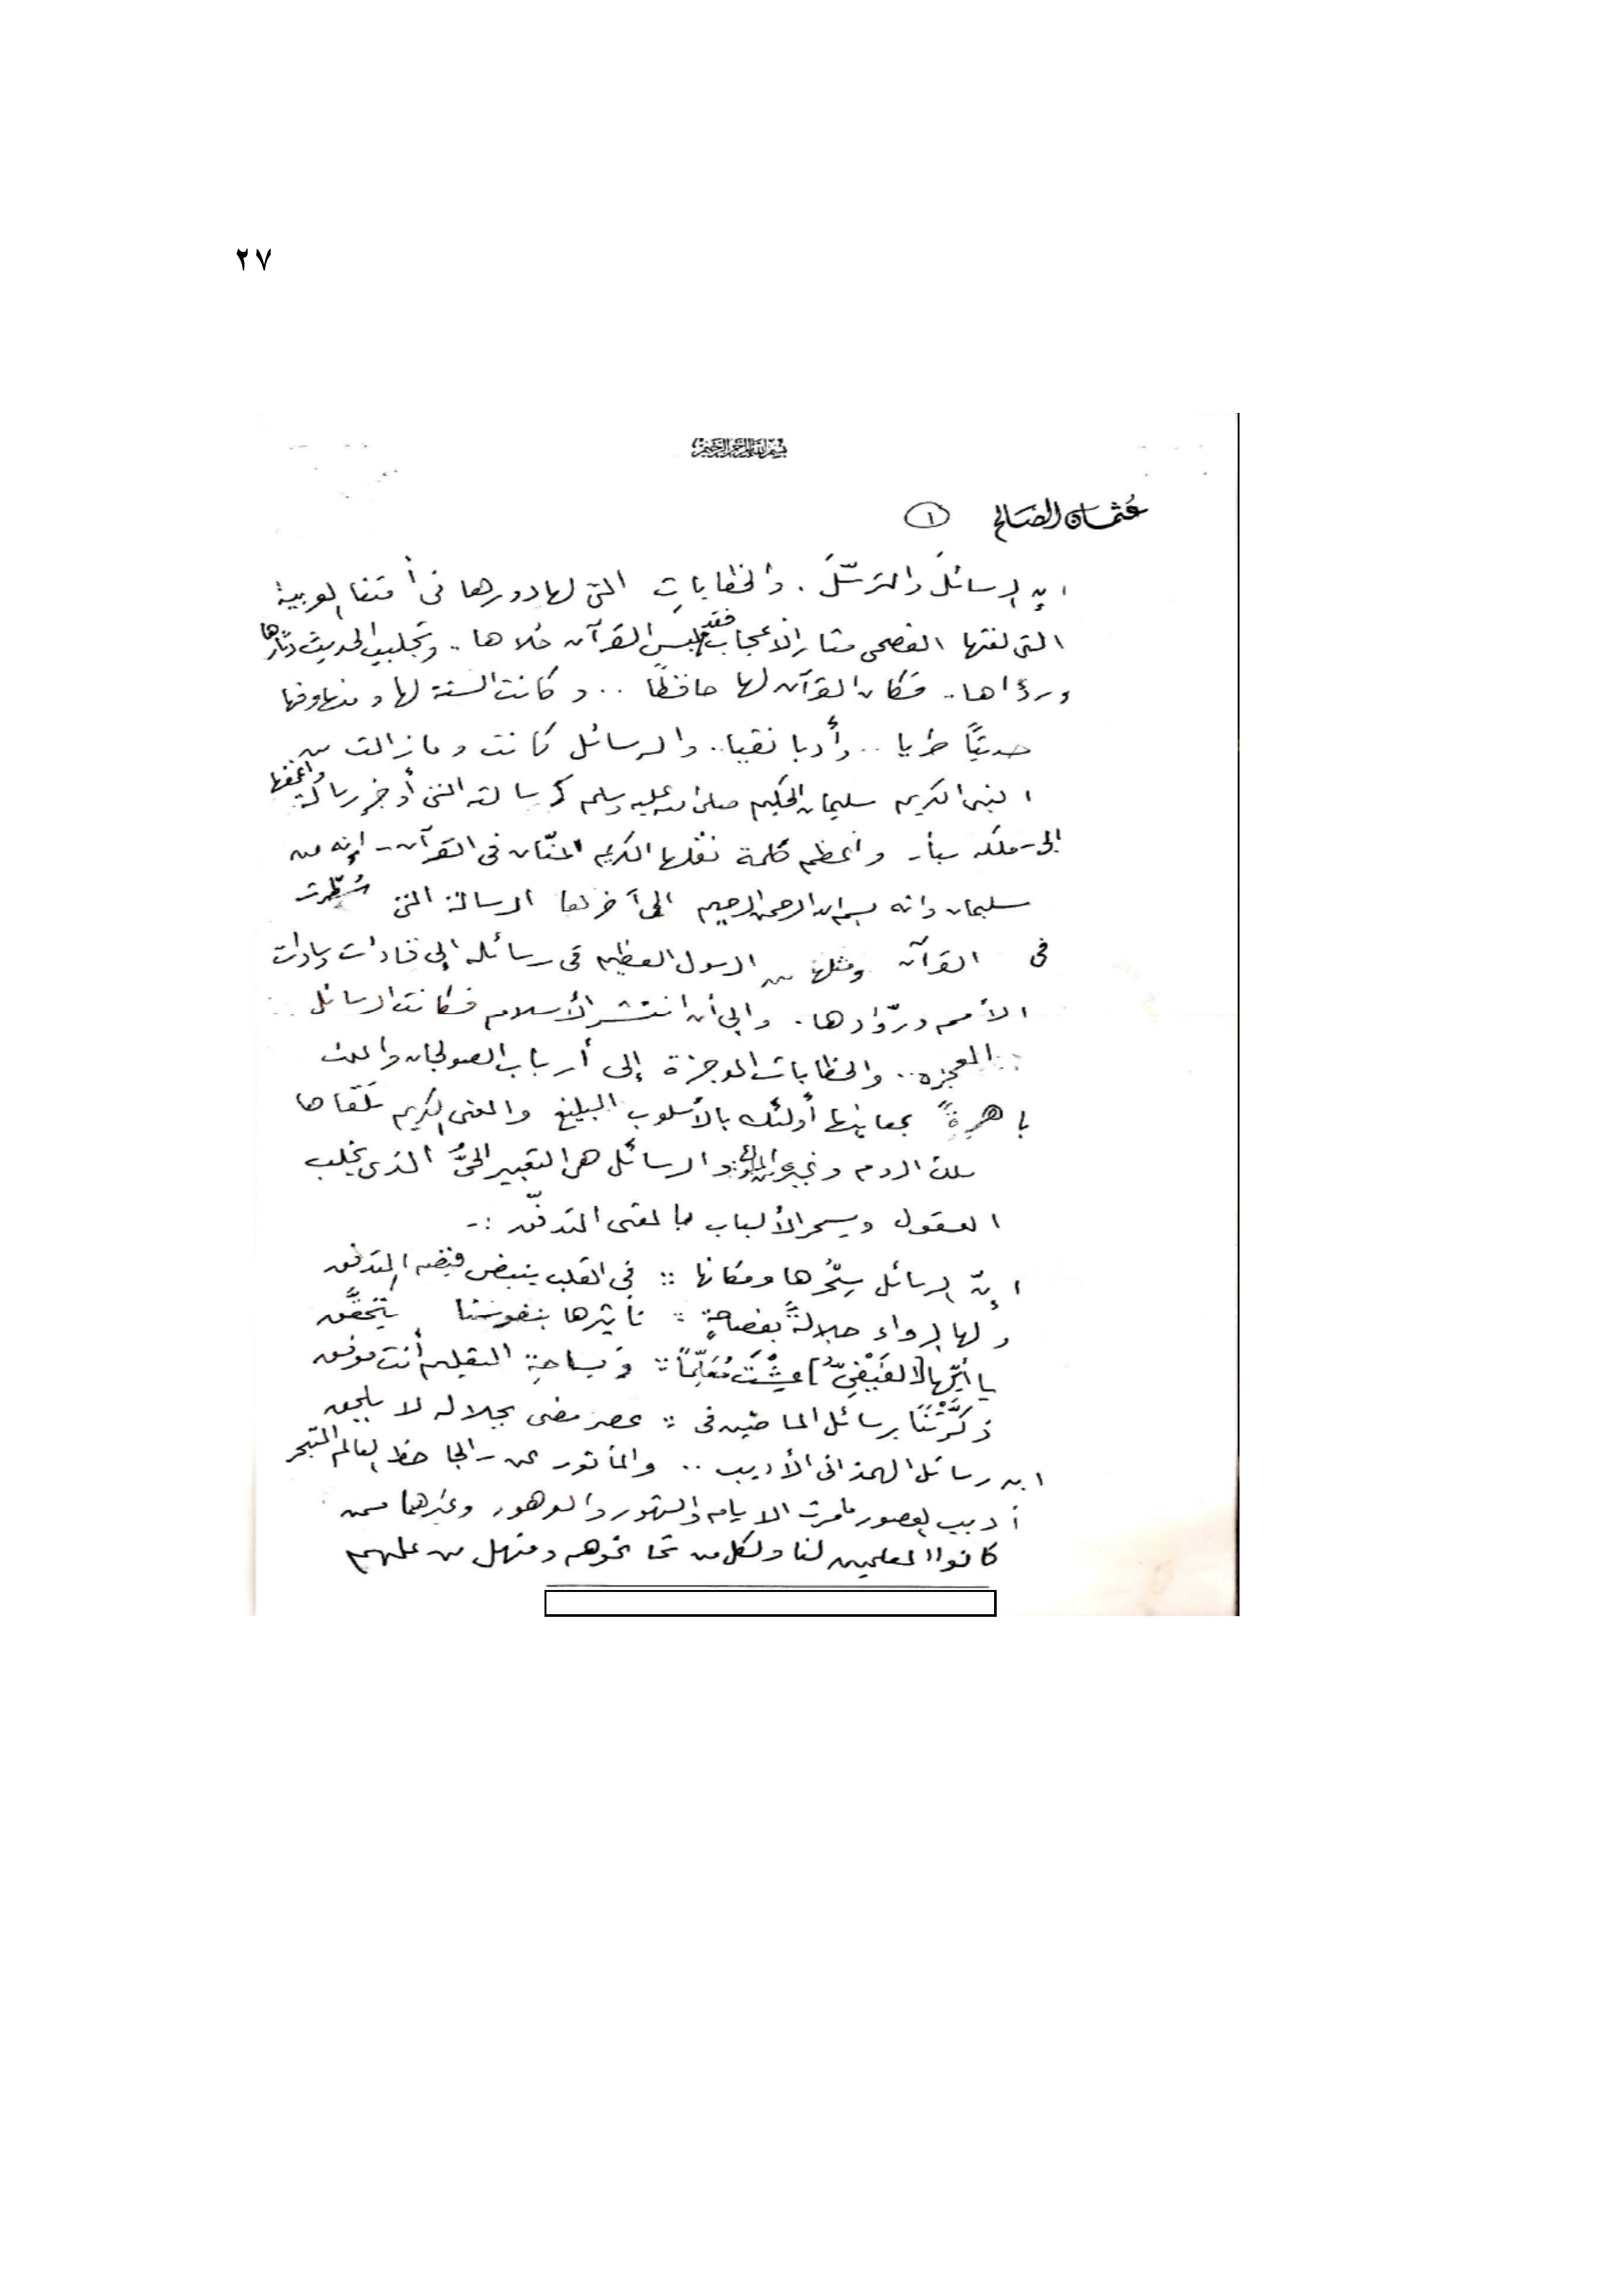 ٢٧
بسم الله الرحمن الرحيم
عثمان الصالح ١
إن الرسائل والترسّل . والخطابات التي لها دورها في أمتنا العربية
التي لغتها الفصحى مثار الإعجاب فقد لبس القرآن حُلاها .. وتجلبب الحديث دثارها
ورؤاها .. فكان القرآن لها حافظاً .. وكانت السنة لها ومنها وفيها
حديثاً طريا .. وأدبا نقيا .. والرسائل كانت وما زالت من
النبي الكريم سليمان الحكيم صلى الله عليه وسلم كرسالته التي أوجز رسالة
إلى ملكة سبأ - وأعظم كلمة نقلها الكريم المنّان في القرآن - إنه من
سليمان وانه بسم الله الرحمن الرحيم إلى آخر الرسالة التي سُطّرت
في القرآن ومثلها من الرسول العظيم في رسائله إلى قادات وسادات
الأمم وروّادها . وإلى أن انتشر الإسلام فكانت الرسائل
المعجزه .. والخطابات الموجزة إلى أرباب الصولجان والملك
باهرةً بمعانيها أولئك بالأسلوب البليغ والمعنى الكريم تلقاها
ملك الروم وغيره من الملوك والرسائل هي التعبير الحيُّ الذي يخلب
العقول ويسحر الألباب بالمعنى المتدفّق :-
إنّ الرسائل سِحْرُها ومكانها :: في القلب ينبض فيضه المتدفق
ولها الرواء جلالةً بفصاحةٍ :: تأثيرها بنفوسنا يتحقَّق
يا أيّها [الفَيْفيّ] عِشْتَ مُعَلِّماً :: وبساحةِ التعليم أنت موفق
ذكَّرْتَنا برسائل الماضين في :: عصر مضى بجلاله لا يلحق
إن رسائل الهمذاني الأديب .. والمأثور عن - الجاحظ العالم المتبحر
أديب العصور ما مرت الايام والشهور والدهور وغيرهما ممن
كانوا المعلمين لنا ولكل من نحا نحوهم ومنهل من علمهم